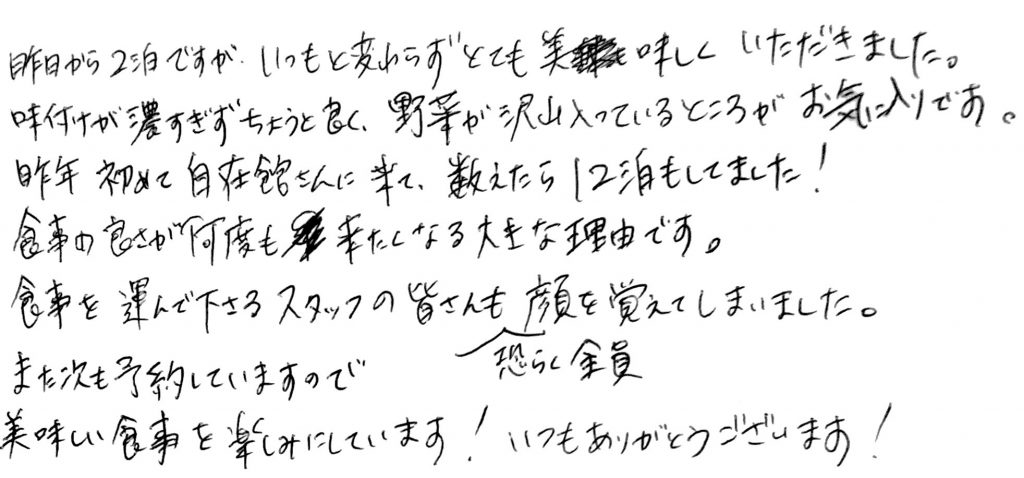 昨日から2泊ですが、いつもと変わらずとても美味しくいただきました。
味付けが濃すぎずちょうど良く、野菜が沢山入っているところがお気に入りです。
昨年初めて自在館さんに来て、数えたら12泊もしてました!
食事の良さが何度も来たくなる大きな理由です。
食事を運んで下さるスタッフの皆さんも顔を覚えてしまいました。
恐らく全員
また次も予約していますので
美味しい食事を楽しみにしています!いつもありがとうございます!